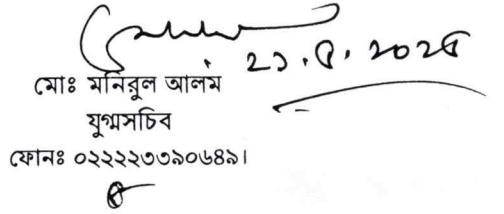 ২১.৫.২০২৫
মোঃ মনিরুল আলম
যুগ্মসচিব
ফোনঃ ০২২২২৩৩৯০৬৪৯।